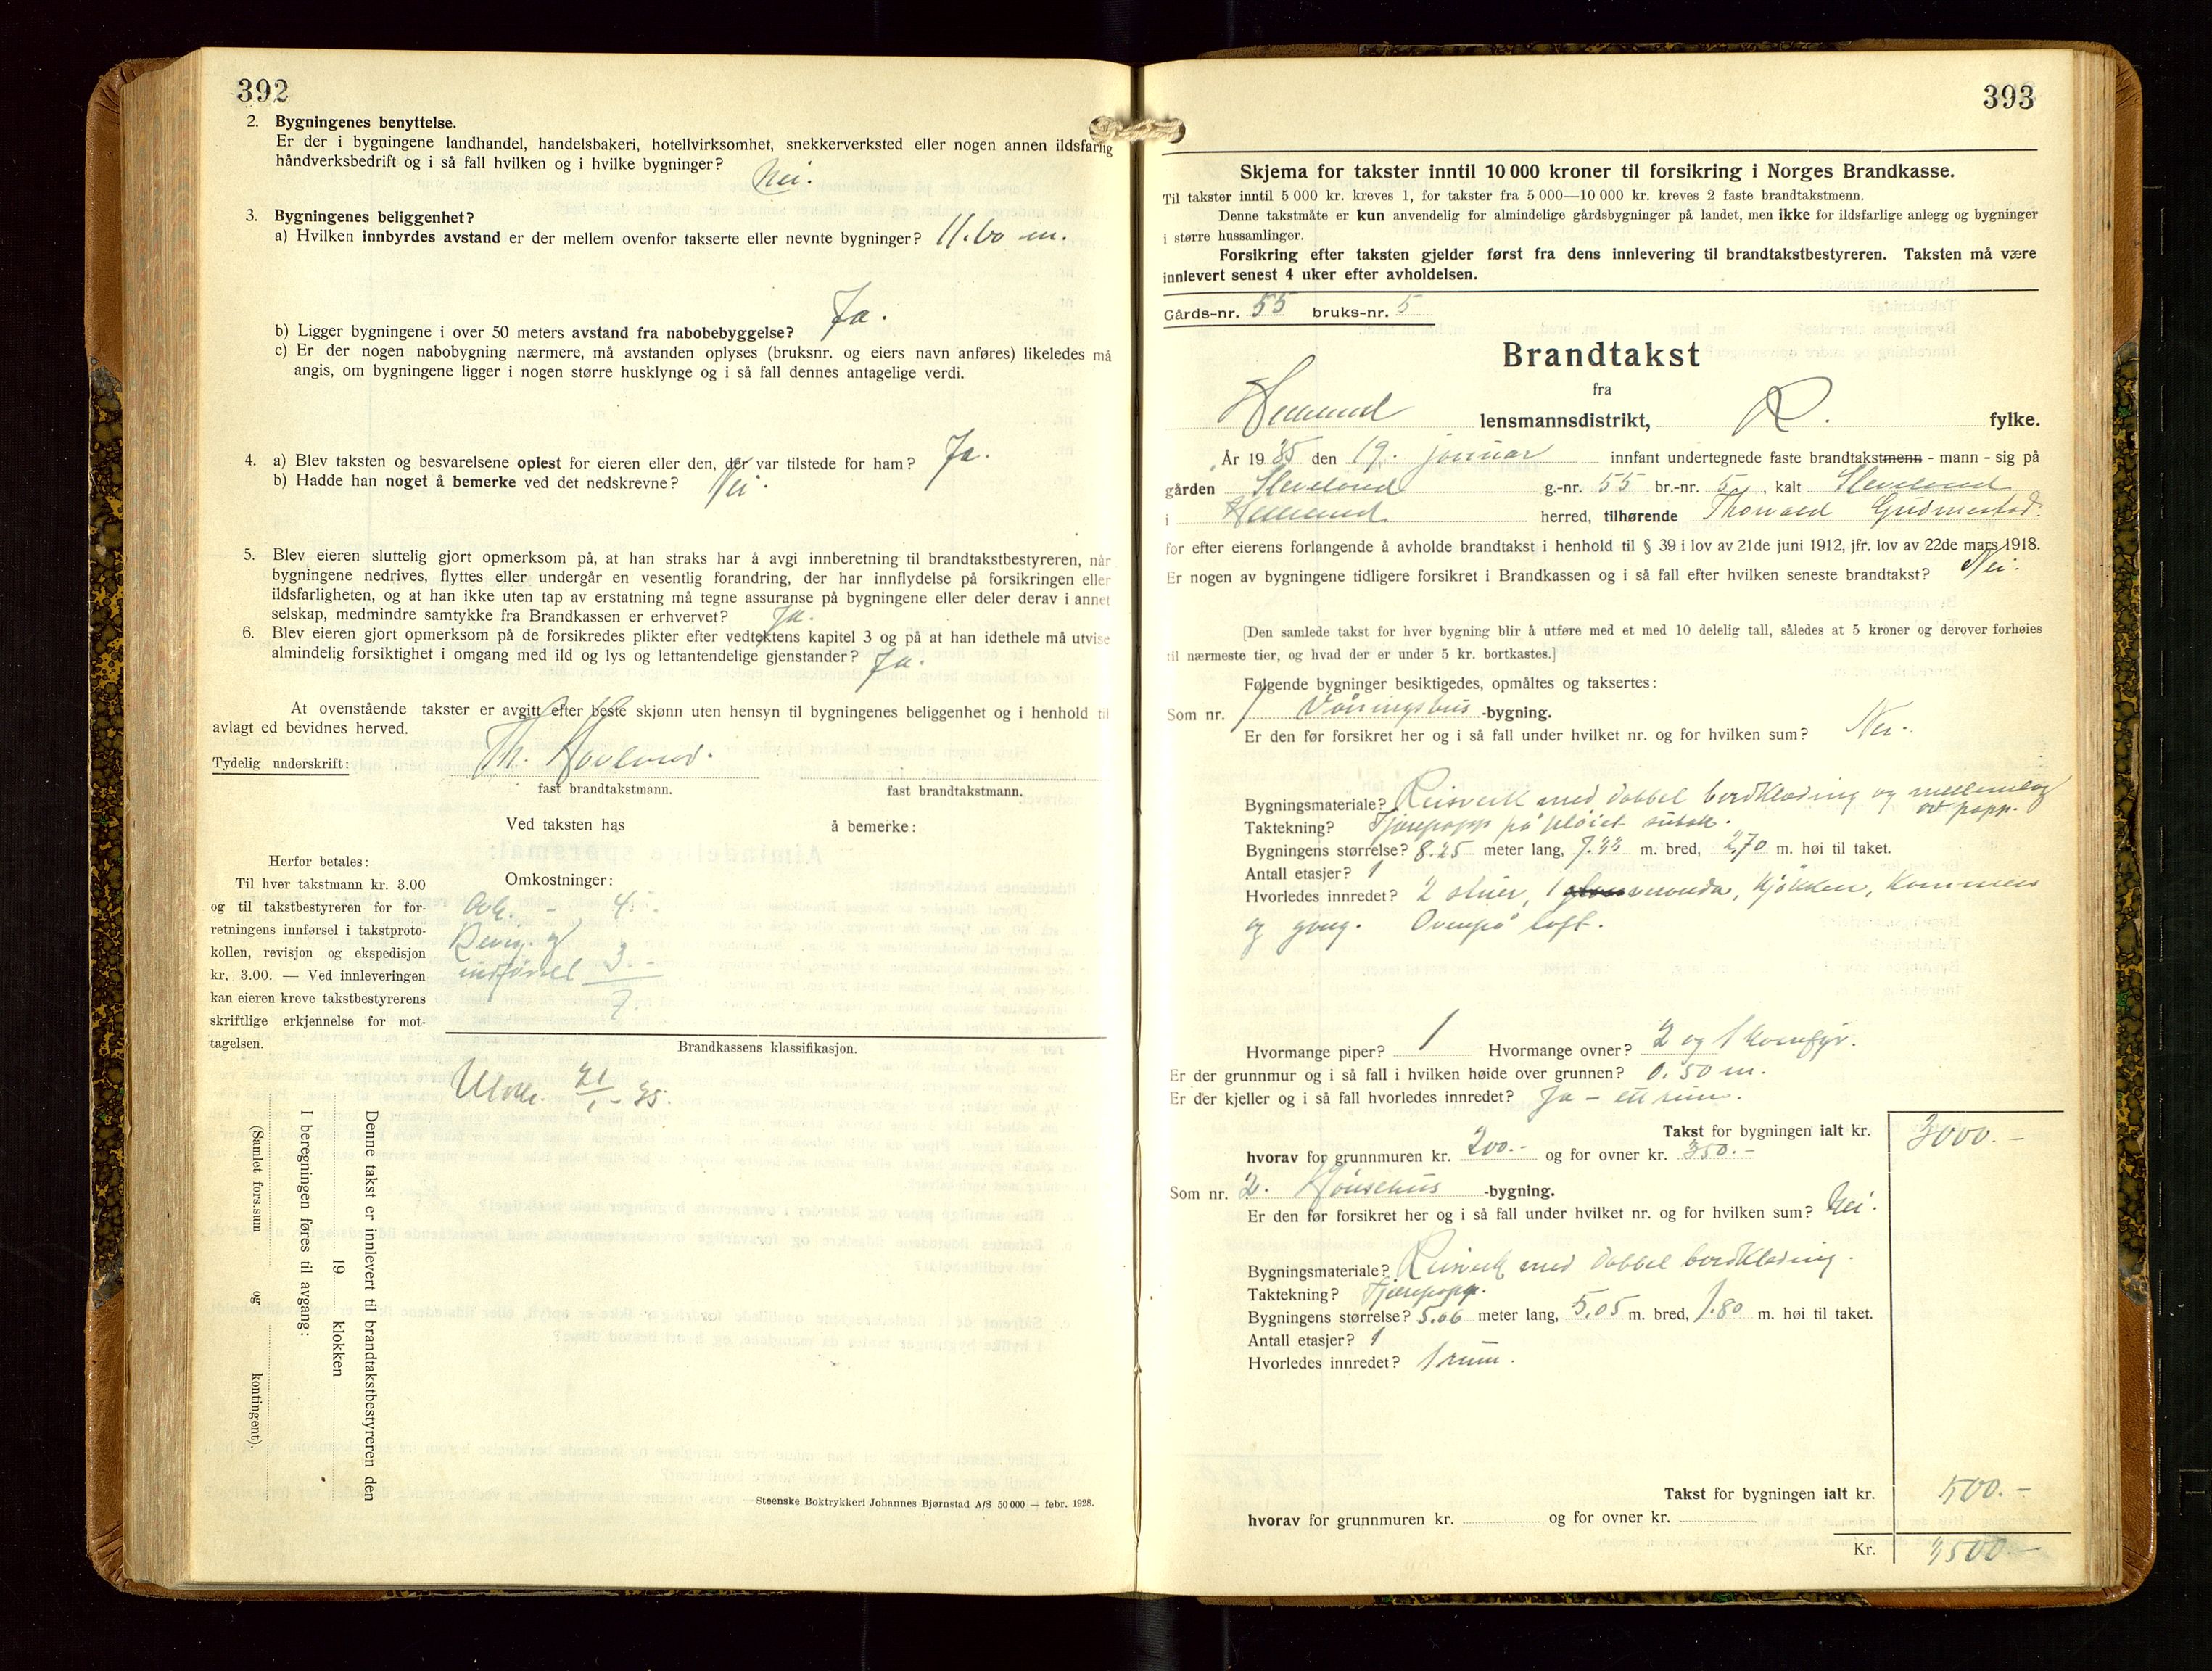 392
2. Bygningenes benyttelse.
Er der i bygningene landhandel, handelsbakeri, hotellvirksomhet, snekkerverksted eller nogen annen ildsfarlig
håndverksbedrift og i så fall hvilken og i hvilke bygninger? Nei.
3. Bygningenes beliggenhet?
a) Hvilken innbyrdes avstand er der mellem ovenfor takserte eller nevnte bygninger? 11.60 m.
b) Ligger bygningene i over 50 meters avstand fra nabobebyggelse? Ja.
c) Er der nogen nabobygning nærmere, må avstanden oplyses (bruksnr. og eiers navn anføres) likeledes må
angis, om bygningene ligger i nogen større husklynge og i så fall dennes antagelige verdi.
4. a) Blev taksten og besvarelsene oplest for eieren eller den, der var tilstede for ham? Ja.
b) Hadde han noget å bemerke ved det nedskrevne? Nei.
5. Blev eieren sluttelig gjort opmerksom på, at han straks har å avgi innberetning til brandtakstbestyreren, når
bygningene nedrives, flyttes eller undergår en vesentlig forandring, der har innflydelse på forsikringen eller
ildsfarligheten, og at han ikke uten tap av erstatning må tegne assuranse på bygningene eller deler derav i annet
selskap, medmindre samtykke fra Brandkassen er erhvervet? Ja.
6. Blev eieren gjort opmerksom på de forsikredes plikter efter vedtektens kapitel 3 og på at han idethele må utvise
almindelig forsiktighet i omgang med ild og lys og lettantendelige gjenstander? Ja.
At ovenstående takster er avgitt efter beste skjønn uten hensyn til bygningenes beliggenhet og i henhold til
avlagt ed bevidnes herved.
Tydelig underskrift: Th. Hovland.
fast brandtakstmann. fast brandtakstmann.
Ved taksten has å bemerke:
Herfor betales:
Til hver takstmann kr. 3.00
og til takstbestyreren for for-
retningens innførsel i takstproto-
kollen, revisjon og ekspedisjon
kr. 3.00. — Ved innleveringen
kan eieren kreve takstbestyrerens
skriftlige erkjennelse for mot-
tagelsen.
Omkostninger:
4.-
innførsel 3.-
7.
Brandkassens klassifikasjon.
21/1-35.
Denne takst er innlevert til brandtakstbestyreren den
19 klokken
I beregningen føres til avgang:
(Samlet fors.sum og kontingent).
Steenske Boktrykkeri Johannes Bjørnstad A/S 50 000 — febr. 1928.
393
Skjema for takster inntil 10 000 kroner til forsikring i Norges Brandkasse.
Til takster inntil 5 000 kr. kreves 1, for takster fra 5 000—10 000 kr. kreves 2 faste brandtakstmenn.
Denne takstmåte er kun anvendelig for almindelige gårdsbygninger på landet, men ikke for ildsfarlige anlegg og bygninger
i større hussamlinger.
Forsikring efter taksten gjelder først fra dens innlevering til brandtakstbestyreren. Taksten må være
innlevert senest 4 uker efter avholdelsen.
Gårds-nr. 55 bruks-nr. 5
Brandtakst
fra
lensmannsdistrikt, R. fylke.
År 1935 den 19. januar innfant undertegnede faste brandtakstmenn - mann - sig på
gården g.-nr. 55 br.-nr. 5, kalt
i herred, tilhørende Thorvald
for efter eierens forlangende å avholde brandtakst i henhold til § 39 i lov av 21de juni 1912, jfr. lov av 22de mars 1918.
Er nogen av bygningene tidligere forsikret i Brandkassen og i så fall efter hvilken seneste brandtakst? Nei.
[Den samlede takst for hver bygning blir å utføre med et med 10 delelig tall, således at 5 kroner og derover forhøies
til nærmeste tier, og hvad der er under 5 kr. bortkastes.]
Følgende bygninger besiktigedes, opmåltes og taksertes:
Som nr. 1 Våningshus -bygning.
Er den før forsikret her og i så fall under hvilket nr. og for hvilken sum? Nei.
Bygningsmateriale? Reisverk med dobbel bordklædning og mellemlag
av papp.
Taktekning? Tjærepapp på pløiet sutak.
Bygningens størrelse? 8.25 meter lang, 7.33 m. bred, 2,70 m. høi til taket.
Antall etasjer? 1
Hvorledes innredet? 2 stuer, 1 veranda, kjøkken, kammers
og gang. Ovenpå loft.
Hvormange piper? 1 Hvormange ovner? 2 og 1 komfyr.
Er der grunnmur og i så fall i hvilken høide over grunnen? 0.50 m.
Er der kjeller og i så fall hvorledes innredet? Ja - ett rum.
Takst for bygningen ialt kr. 3000.-
hvorav for grunnmuren kr. 200.- og for ovner kr. 350.-
Som nr. 2. Hønsehus -bygning.
Er den før forsikret her og i så fall under hvilket nr. og for hvilken sum? Nei.
Bygningsmateriale? Reisverk med dobbel bordklædning.
Taktekning? Tjærepapp.
Bygningens størrelse? 5.06 meter lang, 5.05 m. bred, 1.80 m. høi til taket.
Antall etasjer? 1
Hvorledes innredet? 1 rum.
Takst for bygningen ialt kr. 500.-
hvorav for grunnmuren kr. og for ovner kr.
Kr. 3500.-